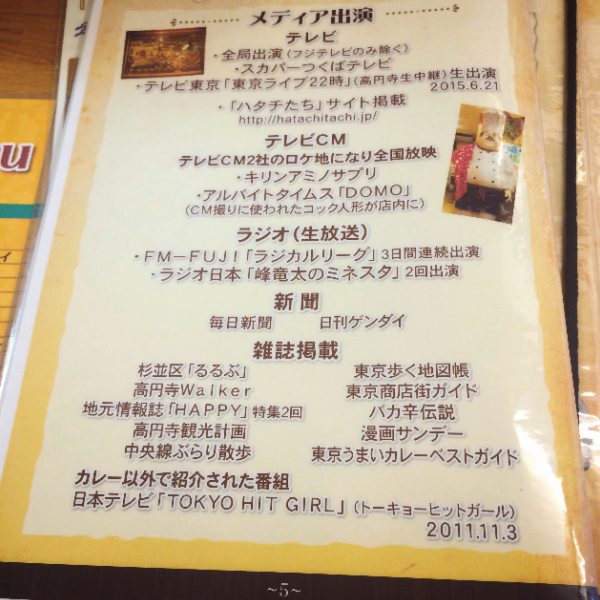 メディア出演
テレビ
・全局出演(フジテレビのみ除く)
・スカパーつくばテレビ
・テレビ東京「東京ライブ22時」(高円寺生中継)生出演
2015.6.21
・「ハタチたち」サイト掲載
http://hatachitachi.jp/
テレビCM
テレビCM2社のロケ地になり全国放映
・キリンアミノサプリ
・アルバイトタイムス「DOMO」
(CM撮りに使われたコック人形が店内に)
ラジオ(生放送)
・FM-FUJI「ラジカルリーグ」3日間連続出演
・ラジオ日本「峰竜太のミネスタ」2回出演
新聞
毎日新聞 日刊ゲンダイ
雑誌掲載
杉並区「るるぶ」 東京歩く地図帳
高円寺Walker 東京商店街ガイド
地元情報誌「HAPPY」特集2回 バカ辛伝説
高円寺観光計画 漫画サンデー
中央線ぶらり散歩 東京うまいカレーベストガイド
カレー以外で紹介された番組
日本テレビ「TOKYO HIT GIRL」(トーキョーヒットガール)
2011.11.3
~5~